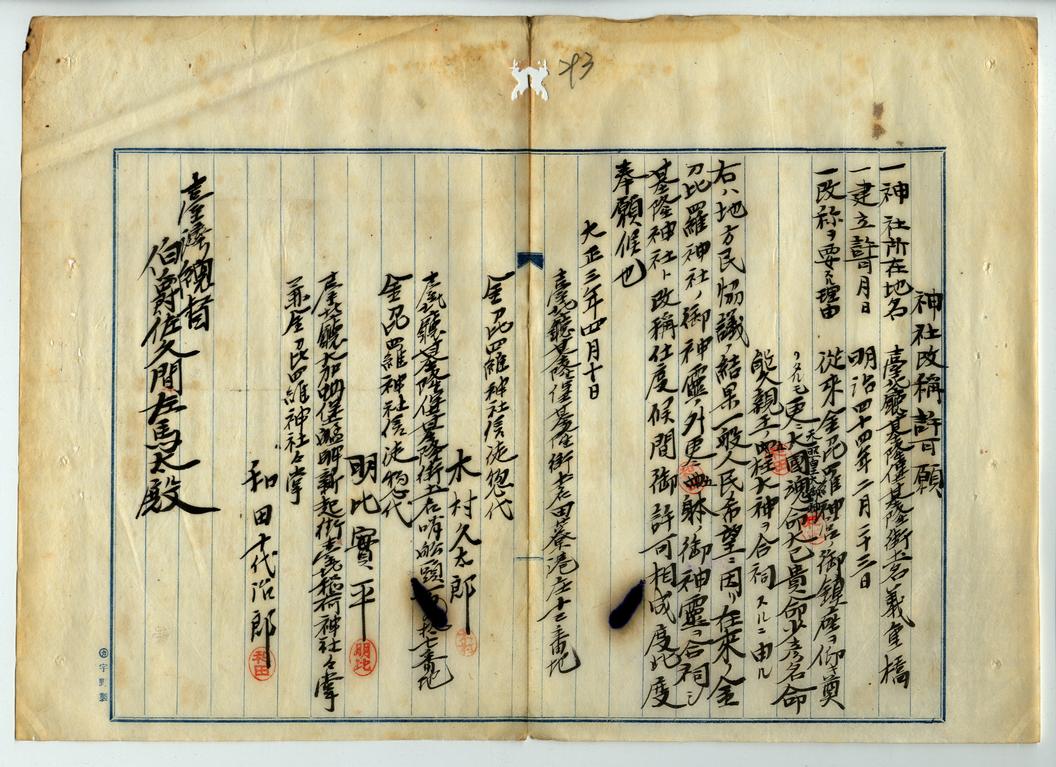 神社改稱許可願
一神社所在地名 臺北廳基隆堡基隆街土名義重橋
一建立許可月日 明治四十四年二月二十三日
一改称ヲ要スル理由 従来金毘羅神ノミ御鎮座ヲ仰キ奠
リタルモ更ニ大國魂命大己貴命少彦名命
天照皇大神
能久親王 五柱大神ヲ合祠スルニ由ル
右ハ地方民協議ノ結果一般人民希望ニ因リ在来ノ金
刀比羅神社ノ御神霊ノ外更ニ五躰ノ御神霊ヲ合祠シ
基隆神社ト改稱仕度候間御許可相成度此度
奉願候也
大正三年四月十日
臺北廳基隆堡基隆街土名田寮港庄十二番地
金毘羅神社信徒惣代
木村久太郎
臺北廳基隆堡基隆街土名哨船頭 拾七番地
金毘羅神社信徒惣代
明比實平
臺北廳大加蚋堡艋舺新起街 稲荷神社々掌
兼金毘羅神社々掌
和田千代治郎
臺灣總督
伯爵佐久間左馬太殿
木村
明比
和田